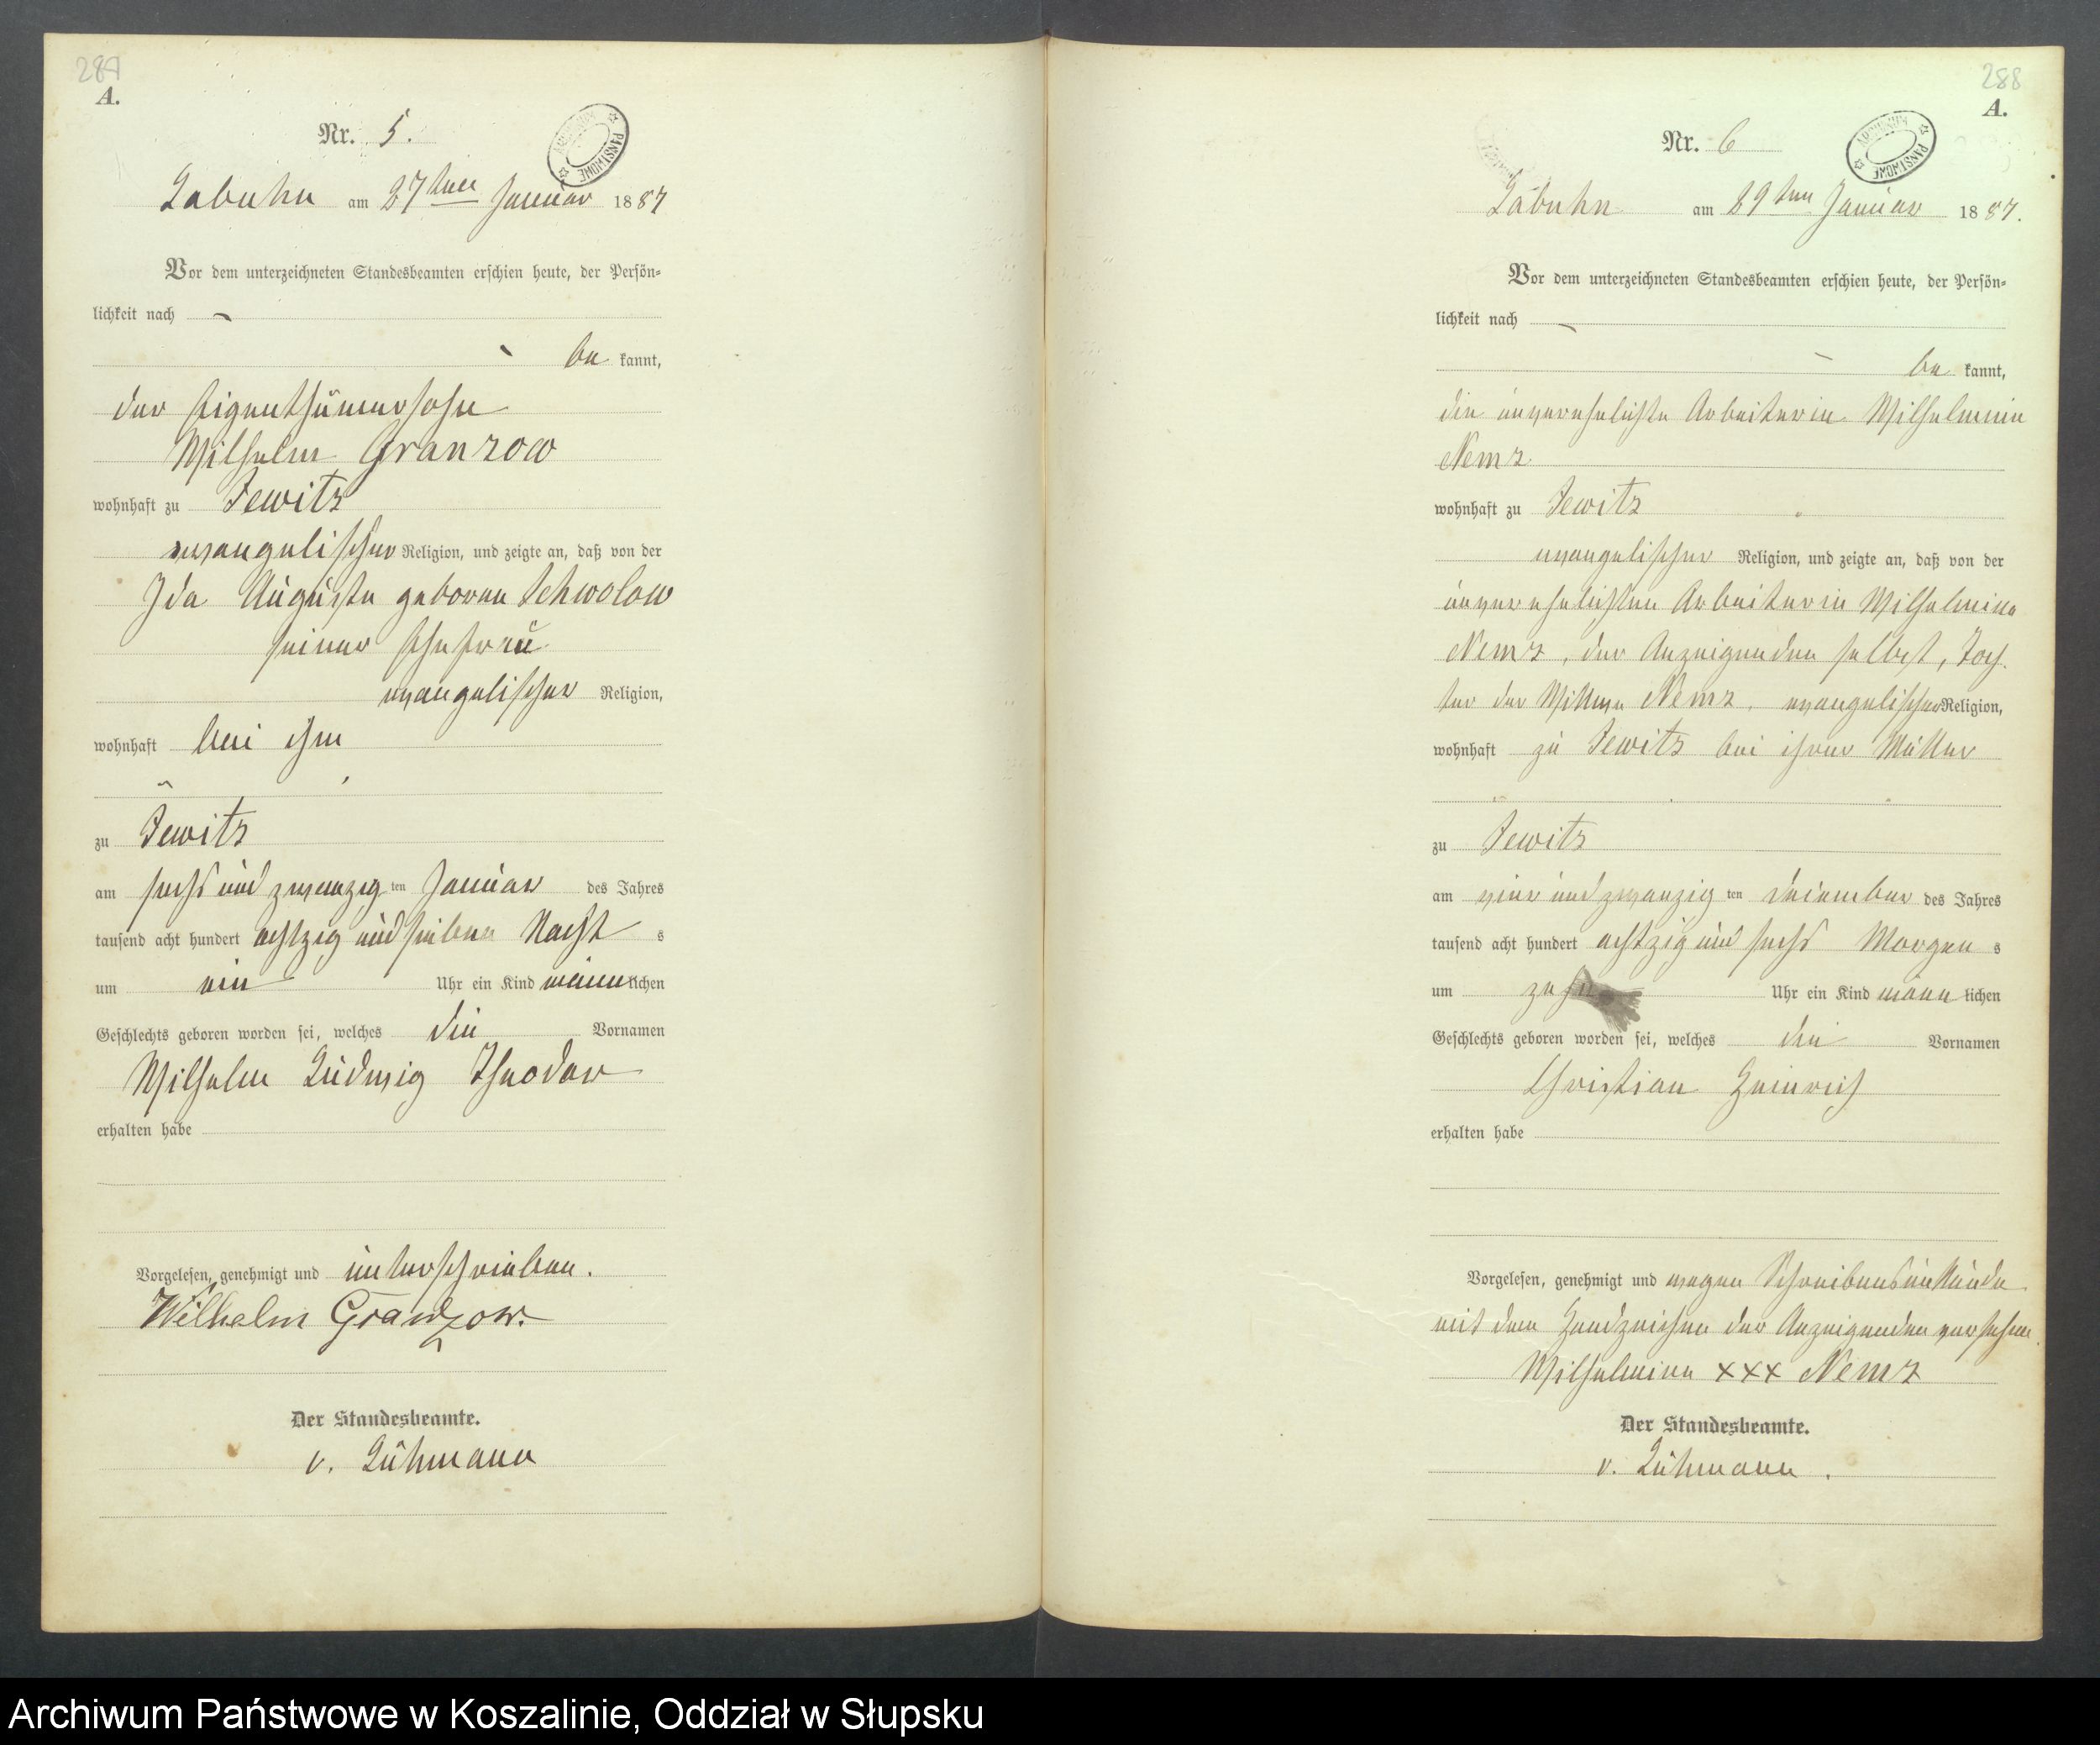 287
A.
Nr. 5.
ARCHIWUM PAŃSTWOWE
Labuhn am 27ten Januar 1887
Vor dem unterzeichneten Standesbeamten erschien heute, der Persön-
lichkeit nach
be kannt,
der Eigenthümersohn
Wilhelm Granzow
wohnhaft zu Jewitz
evangelischer Religion, und zeigte an, daß von der
Ida Auguste geboren Schwolow
seiner Ehefrau
evangelischer Religion,
wohnhaft bei ihm
zu Jewitz
am sechs und zwanzig ten Januar des Jahres
tausend acht hundert achtzig und sieben Nacht s
um ein Uhr ein Kind männ lichen
Geschlechts geboren worden sei, welches die Vornamen
Wilhelm Ludwig Theodor
erhalten habe
Vorgelesen, genehmigt und unterschrieben.
Wilhelm Granzow.
Der Standesbeamte.
v. Lühmann
288
A.
Nr. 6
ARCHIWUM PAŃSTWOWE
Labuhn am 29ten Januar 1887.
Vor dem unterzeichneten Standesbeamten erschien heute, der Persön-
lichkeit nach
be kannt,
die unverehelichte Arbeiterin Wilhelmine
Nemz
wohnhaft zu Jewitz
evangelischer Religion, und zeigte an, daß von der
unverehelichten Arbeiterin Wilhelmine
Nemz, der Anzeigenden selbst, Toch-
ter der Wittwe Nemz, evangelischer Religion,
wohnhaft zu Jewitz bei ihrer Mutter
zu Jewitz
am vier und zwanzig ten December des Jahres
tausend acht hundert achtzig und sechs Morgen s
um zehn Uhr ein Kind männ lichen
Geschlechts geboren worden sei, welches die Vornamen
Christian Heinrich
erhalten habe
Vorgelesen, genehmigt und wegen Schreibensunkunde
mit dem Handzeichen der Anzeigenden versehen.
Wilhelmine xxx Nemz
Der Standesbeamte.
v. Lühmann.
Archiwum Państwowe w Koszalinie, Oddział w Słupsku